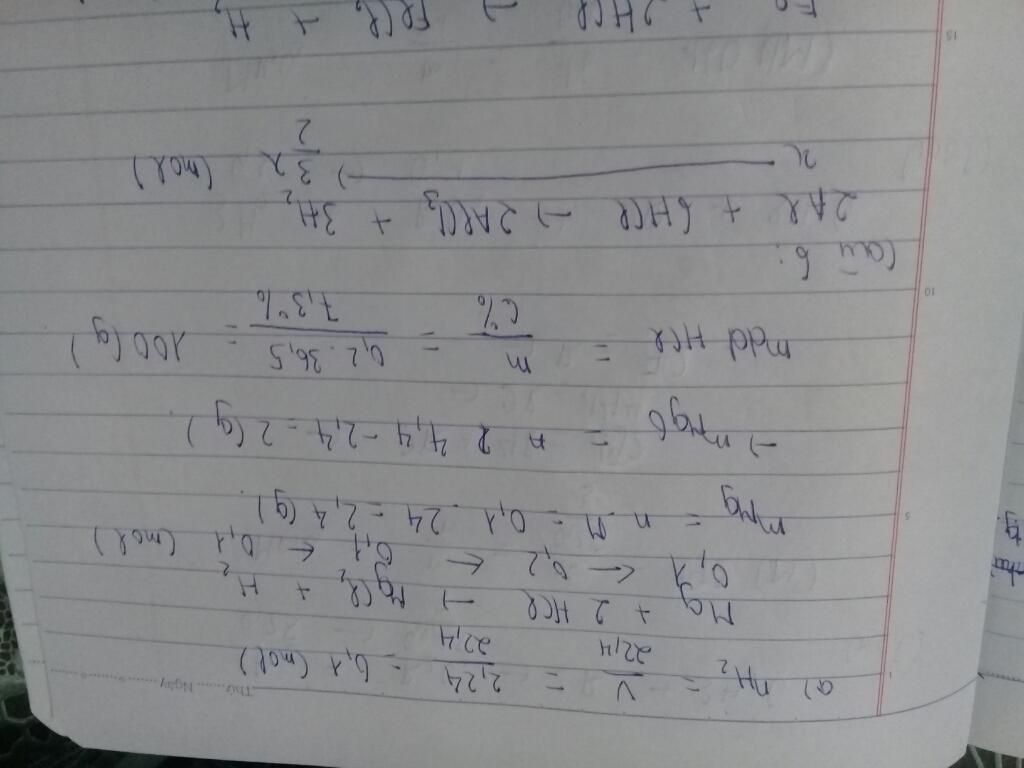 Thứ: Ngày
a) nH2 = V/22,4 = 2,24/22,4 = 0,1 (mol)
Mg + 2HCl → MgCl2 + H2
0,1 ← 0,2 ← 0,1 ← 0,1 (mol)
mMg = n.M = 0,1 . 24 = 2,4 (g).
→ mMgO = 4,4 - 2,4 = 2 (g).
mdd HCl = m/C% = 0,2.36,5/7,3% = 100 (g)
Câu 6:
2Al + 6HCl → 2AlCl3 + 3H2
x → 3/2 x (mol)
Fe + 2HCl → FeCl2 + H2
5
10
15